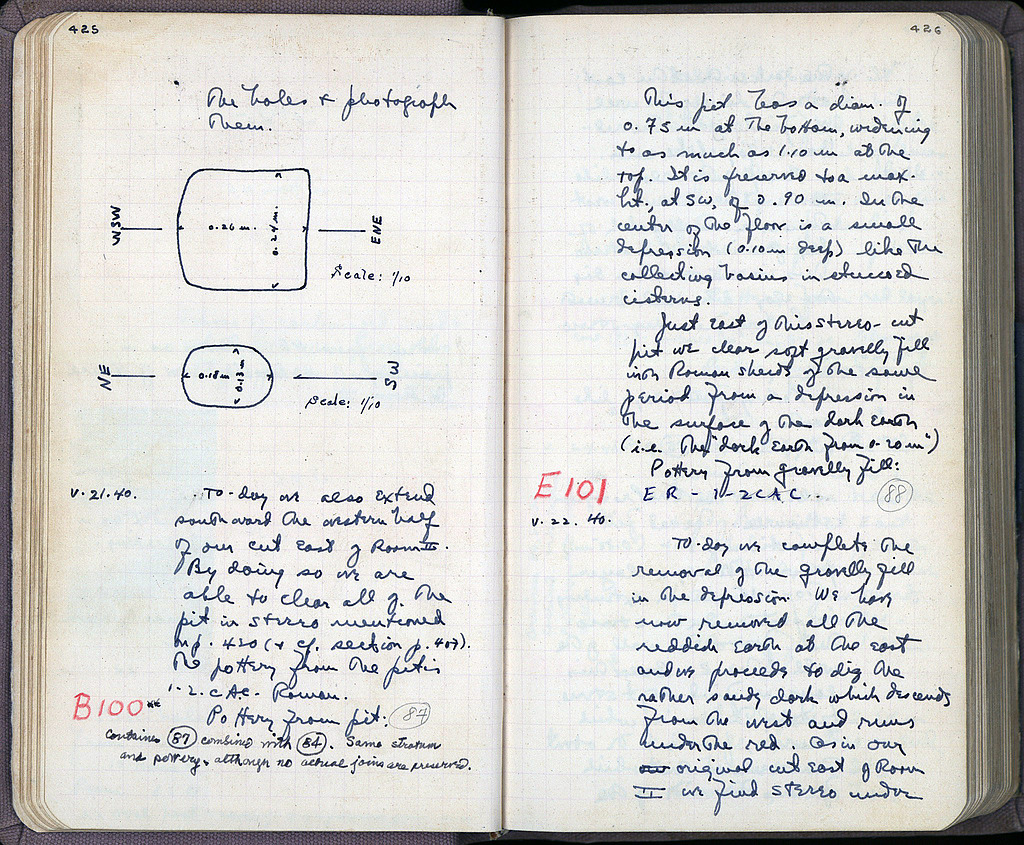 425
the holes & photograph
them.
WSW
0.26 m.
0.24 m.
ENE
Scale: 1/10
NE
0.18 m
0.13 m
SW
Scale: 1/10
V. 21. 40. To-day we also extend
southward the western half
of our cut East of Room II.
By doing so we are
able to clear all of the
pit in stereo mentioned
on p. 420 (& cf. section p. 407).
The pottery from the pit is
1-2. c. AC - Roman.
B100
Pottery from pit: 87
contains 87 combined with 84. Same stratum
and pottery, although no actual joins are preserved.
426
This pit has a diam. of
0.75 m at the bottom, widening
to as much as 1.10 m at the
top. It is preserved to a max.
ht., at SW, of 0.90 m. In the
center of the floor is a small
depression (0.10 m deep) like the
collecting basins in stuccoed
cisterns.
Just East of this stereo-cut
pit we clear soft gravelly fill
with Roman sherds of the same
period from a depression in
the surface of the dark Earth
(i.e. the "dark Earth from 0.20 m")
Pottery from gravelly fill:
E 101
E R - 1-2 C A C. 88
V. 22. 40.
To-day we complete the
removal of the gravelly fill
in the depression. We have
now removed all the
reddish Earth at the East
and we proceed to dig the
rather sandy dark which descends
from the west and runs
under the red. As in our
original cut East of Room
II we find stereo under